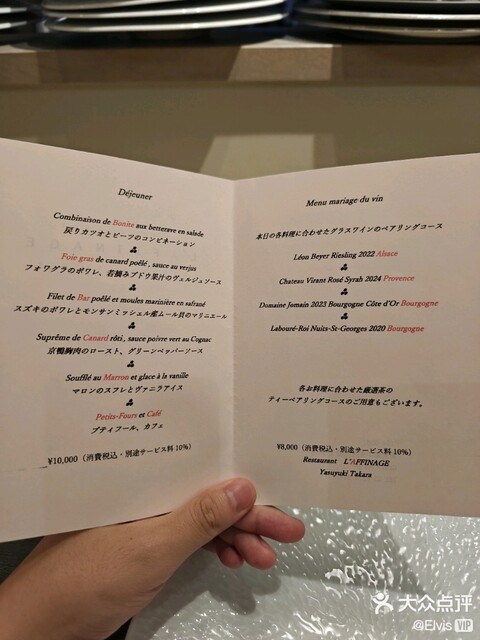 Déjeuner
Combinaison de Bonite aux betterave en salade
戻りカツオとビーツのコンビネーション
Foie gras de canard poêlé , sauce au verjus
フォワグラのポワレ、若摘みブドウ果汁のヴェルジュソース
Filet de Bar poêlé et moules marinière en safrané
スズキのポワレとモンサンミッシェル産ムール貝のマリニエール
Suprême de Canard rôti , sauce poivre vert au Cognac
京鴨胸肉のロースト、グリーンペッパーソース
Soufflé au Marron et glace à la vanille
マロンのスフレとヴァニラアイス
Petits-Fours et Café
プティフール、カフェ
¥10,000（消費税込・別途サービス料 10%）
Menu mariage du vin
本日の各料理に合わせたグラスワインのペアリングコース
Léon Beyer Riesling 2022 Alsace
Chateau Virant Rosé Syrah 2024 Provence
Domaine Jemain 2023 Bourgogne Côte d'Or Bourgogne
Labouré-Roi Nuits-St-Georges 2020 Bourgogne
各お料理に合わせた厳選茶の
ティーペアリングコースのご用意もございます。
¥8,000（消費税込・別途サービス料 10%）
Restaurant L'AFFINAGE
Yasuyuki Takara
大众点评
@Elvis VIP